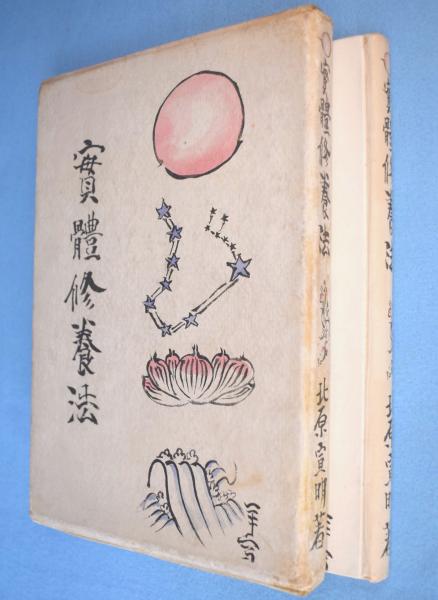 實體修養法
實體修養法
北原實明著
實體修養法
北原實明著